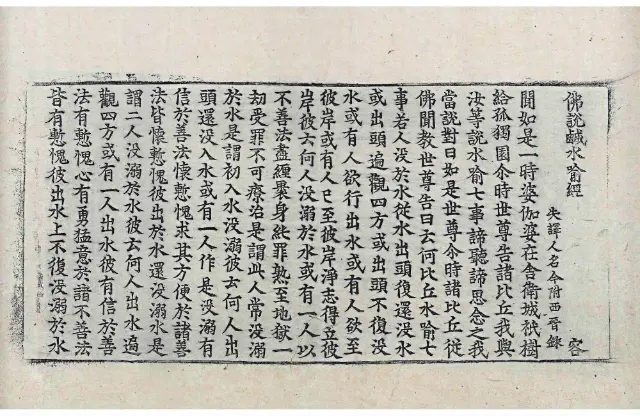 佛說鹹水喻經 容
失譯人名今附西晉錄
聞如是一時婆伽婆在舍衛城祇樹
給孤獨園尒時世尊告諸比丘我與
汝等說水喻七事諦聽諦思念之我
當說對曰如是世尊尒時諸比丘從
佛聞教世尊告曰云何比丘水喻七
事若人沒於水從水出頭復還沒水
或出頭遍觀四方或出頭不復沒
水或有人欲行出水或有人欲至
彼岸或有人已至彼岸淨志得立彼
岸彼云何人沒溺於水或有一人以
不善法盡纏裹身純罪熟至地獄一
劫受罪不可療治是謂此人常沒溺
於水是謂初入水沒溺彼云何人出
頭還沒入水或有一人作是沒溺有
信於善法懷慙愧求其方便於諸善
法皆懷慙愧彼出於水還沒溺水是
謂二人沒溺於水彼云何人出水遍
觀四方或有一人出水彼有信於善
法有慙愧心有勇猛意於諸不善法
皆有慙愧彼出水上不復沒溺於水